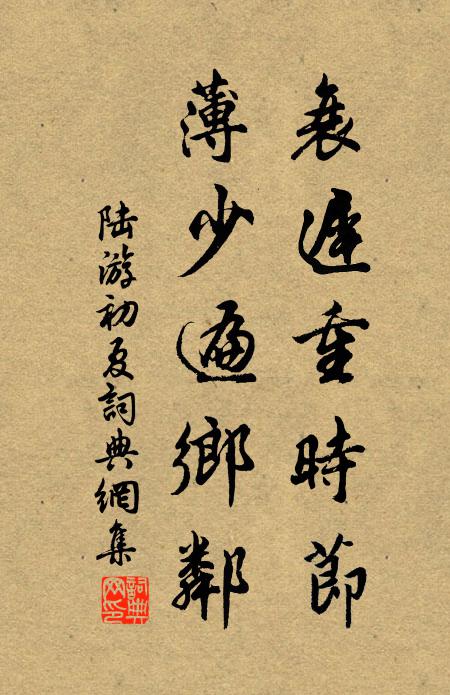 衰遲重時節
薄少遍鄉鄰
陸游初夏詞典網集
詞典网印